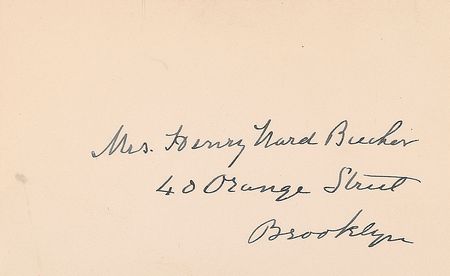 Mrs. Henry Ward Beecher
40 Orange Street
Brooklyn